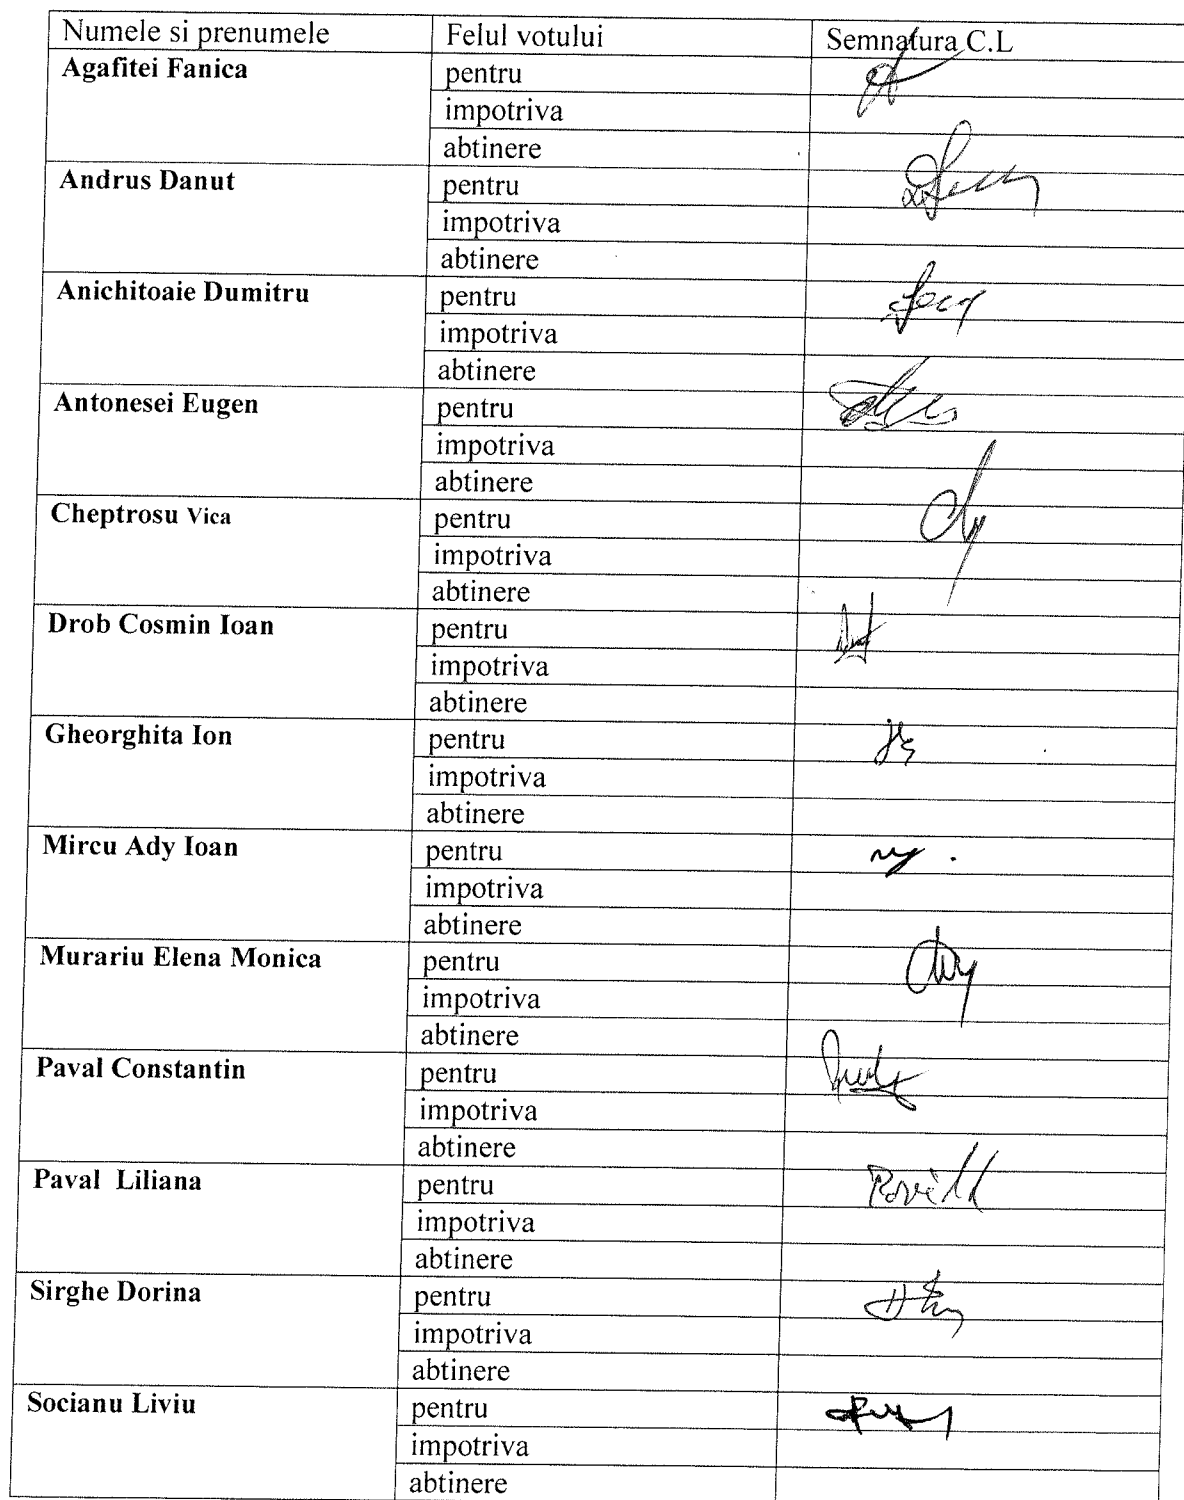 Numele si prenumele Felul votului Semnatura C.L
Agafitei Fanica pentru
impotriva
abtinere
Andrus Danut pentru
impotriva
abtinere
Anichitoaie Dumitru pentru
impotriva
abtinere
Antonesei Eugen pentru
impotriva
abtinere
Cheptrosu Vica pentru
impotriva
abtinere
Drob Cosmin Ioan pentru
impotriva
abtinere
Gheorghita Ion pentru
impotriva
abtinere
Mircu Ady Ioan pentru
impotriva
abtinere
Murariu Elena Monica pentru
impotriva
abtinere
Paval Constantin pentru
impotriva
abtinere
Paval Liliana pentru
impotriva
abtinere
Sirghe Dorina pentru
impotriva
abtinere
Socianu Liviu pentru
impotriva
abtinere